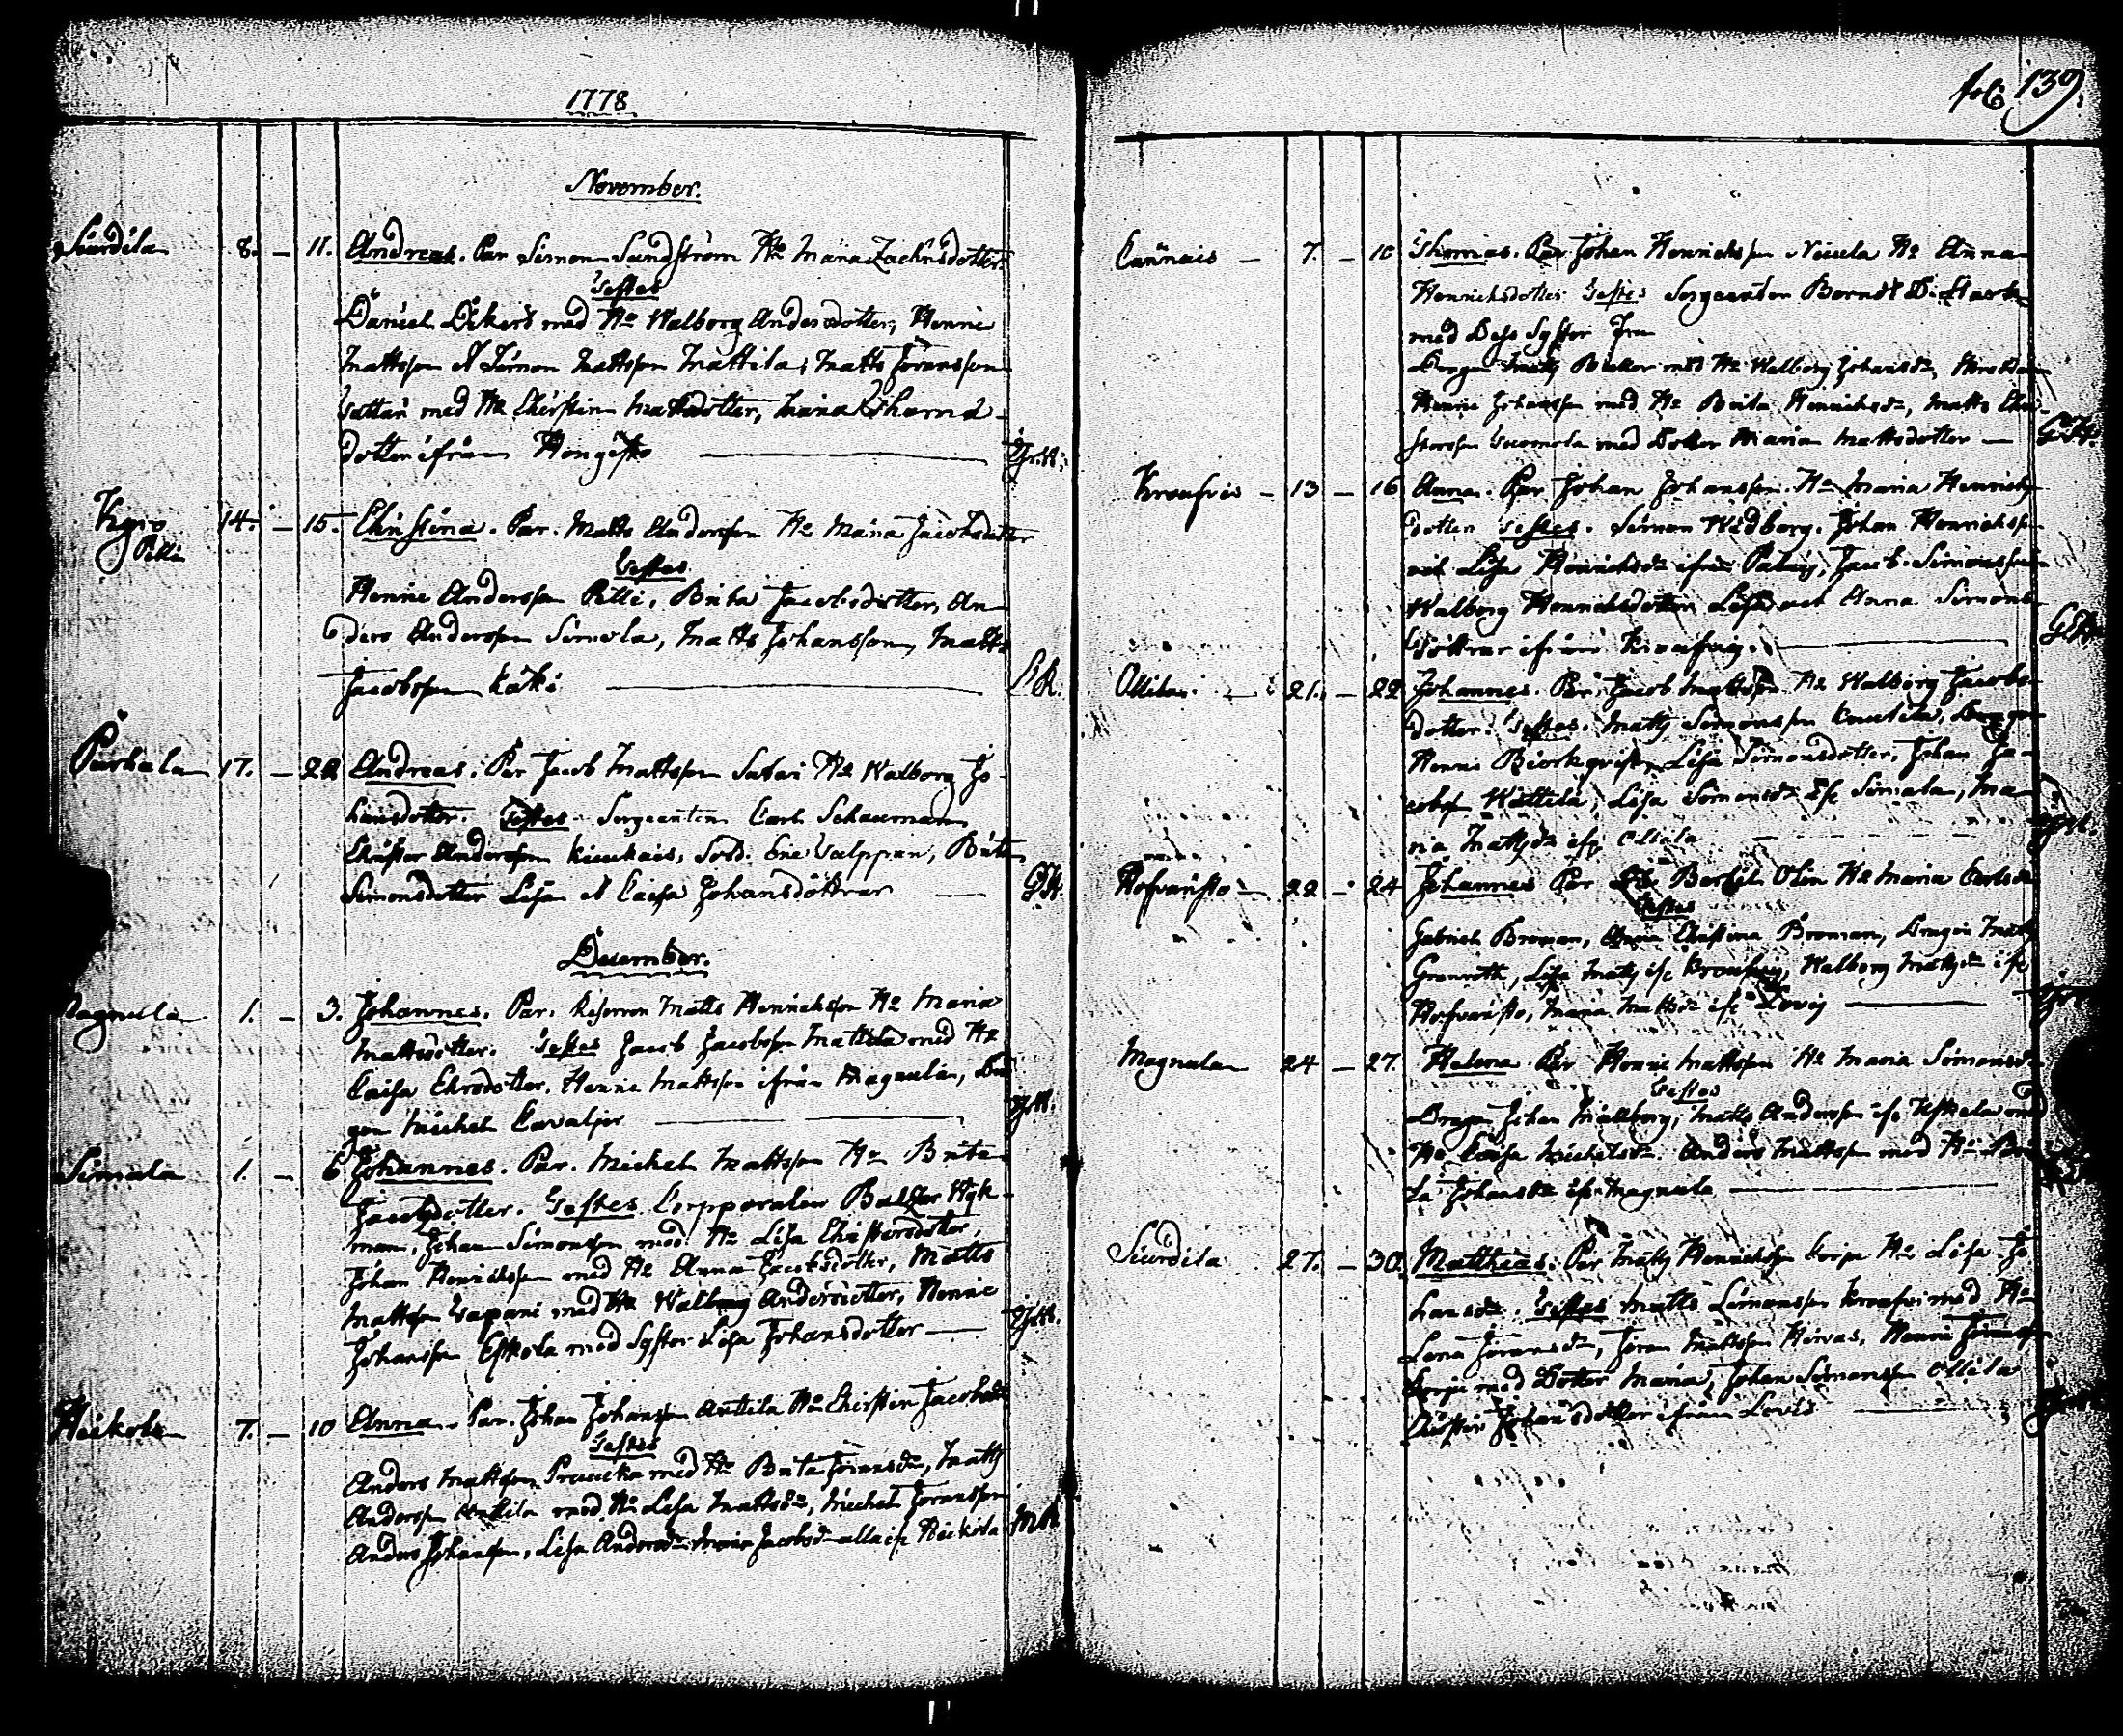 1778
November.
Siurdila 8. – 11. Andreas. Par Simon Sundström Hu Maria Zachrisdotter.
Testes
Daniel Ekert med Hu Walborg Andersdotter, Henric
Mattsson & Simon Mattsson Mattila, Matts Göransson
med Hu Chirstin Mattsdotter, Maria Thoma
dotter ifrån Hongisto
14. – 15. Christina. Par. Matts Andersson Hu Maria Jacobsdotter
Pelli
Testes.
Henric Andersson Pelli, Brita Jacobsdotter, An
ders Andersson Simola, Matts Johansson, Matts
Jacobsson
Purhala 17. – 22 Andreas. Par Jacob Mattsson Hu Walborg Jo
hansdotter. Testes Sergeanten Carl Schauman
Christer Andersson Kiukais, Sold. Eric Walppan, Brita
Simonsdotter Lisa & Caisa Johansdöttrar G.H.
December.
Magnula 1. – 3. Johannes. Par. Matts Henricksson Hu Maria
Mattsdotter. Testes Jacob Jacobsson Mattila med Hu
Caisa Ericsdotter. Henric Mattsson ifrån Magnula, Dra
gon Michel Cavaljer
Simala 1. – 6 Johannes. Par. Michel Mattsson Hu Brita
Jacobsdotter. Testes Corpporalen Baltzer Wyk
man, Johan Simonsson med Hu Lisa Christersdotter,
Johan Henricksson med Hu Anna Jacobsdotter, Matts
Mattsson Tapani med Hu Walborg Andersdotter, Henric
Johansson Eskola med Syster Lisa Johansdotter
Heikola 7. – 10 Anna. Par. Johan Johansson Anttila Hu Chirstin Jacobsdr
Testes
Anders Mattsson med Hu Brita Göransdr, Matts
Andersson Anttila med Hu Lisa Mattsdr, Michel Göransson
Anders Johansson, Lisa Andersdr Maria Jacobsdr alla if. Heikola
fol. 139.
Cannais – 7. – 10 Thomas. Par. Johan Henricksson Hu Anna
Henricksdotter Testes Sergeanten Berndt D.
med Dess Syster
Dragon Matts med Hu Walborg Johansdr,
Henric Johansson med Hu Brita Henricksdr, Matts Chri
stersson med Dotter Maria Mattsdotter – G.H.
– 13 – 16 Anna. Par Johan Johansson. Hu Maria Henricks
dotter Testes. Simon Widberg. Johan Henricksson
och Lisa Henricksdr ifrån Jacob Simonsson
Walborg Henricksdotter Lisa och Anna Simons
döttrar ifrån
Ollila – 21. – 22 Johannes. Par. Jacob Mattsson Hu Walborg Jacobs
dotter. Testes. Matts Simonsson Knutila, Dragon
Henric Biörkqvist, Lisa Simonsdotter, Johan Ja
cobsson Lisa Simonsdr if. Simala, Ma
ria Mattsdr if. Ollila
– 22 – 24 Johannes Par Bertil Olin Hu Maria Carlsdr
Testes
Gabriel Broman, Christina Broman, Dragon Matts
Granroth, Lisa Matts if. Walborg Mattsdr if.
Maria Mattsdr if.
Magnula 24 – 27. Helena Par Henric Mattsson Hu Maria Simonsdr
Testes
Dragon Johan Mattsson Andersson if. med
Hu Caisa Michelsdr. Anders Mattsson med Hu Bri
ta Johansdr if. Magnula
Siurdila 27. – 30. Matthias. Par Matts Henricksson Korpi Hu Lisa Jo
hansdr. Testes Matts Simonsson med Hu
Lena Göransdr, Göran Mattsson Henric Göransson
Korpi med Dotter Maria, Johan Simonsson Ollila
Chirstin Johansdotter ifrån